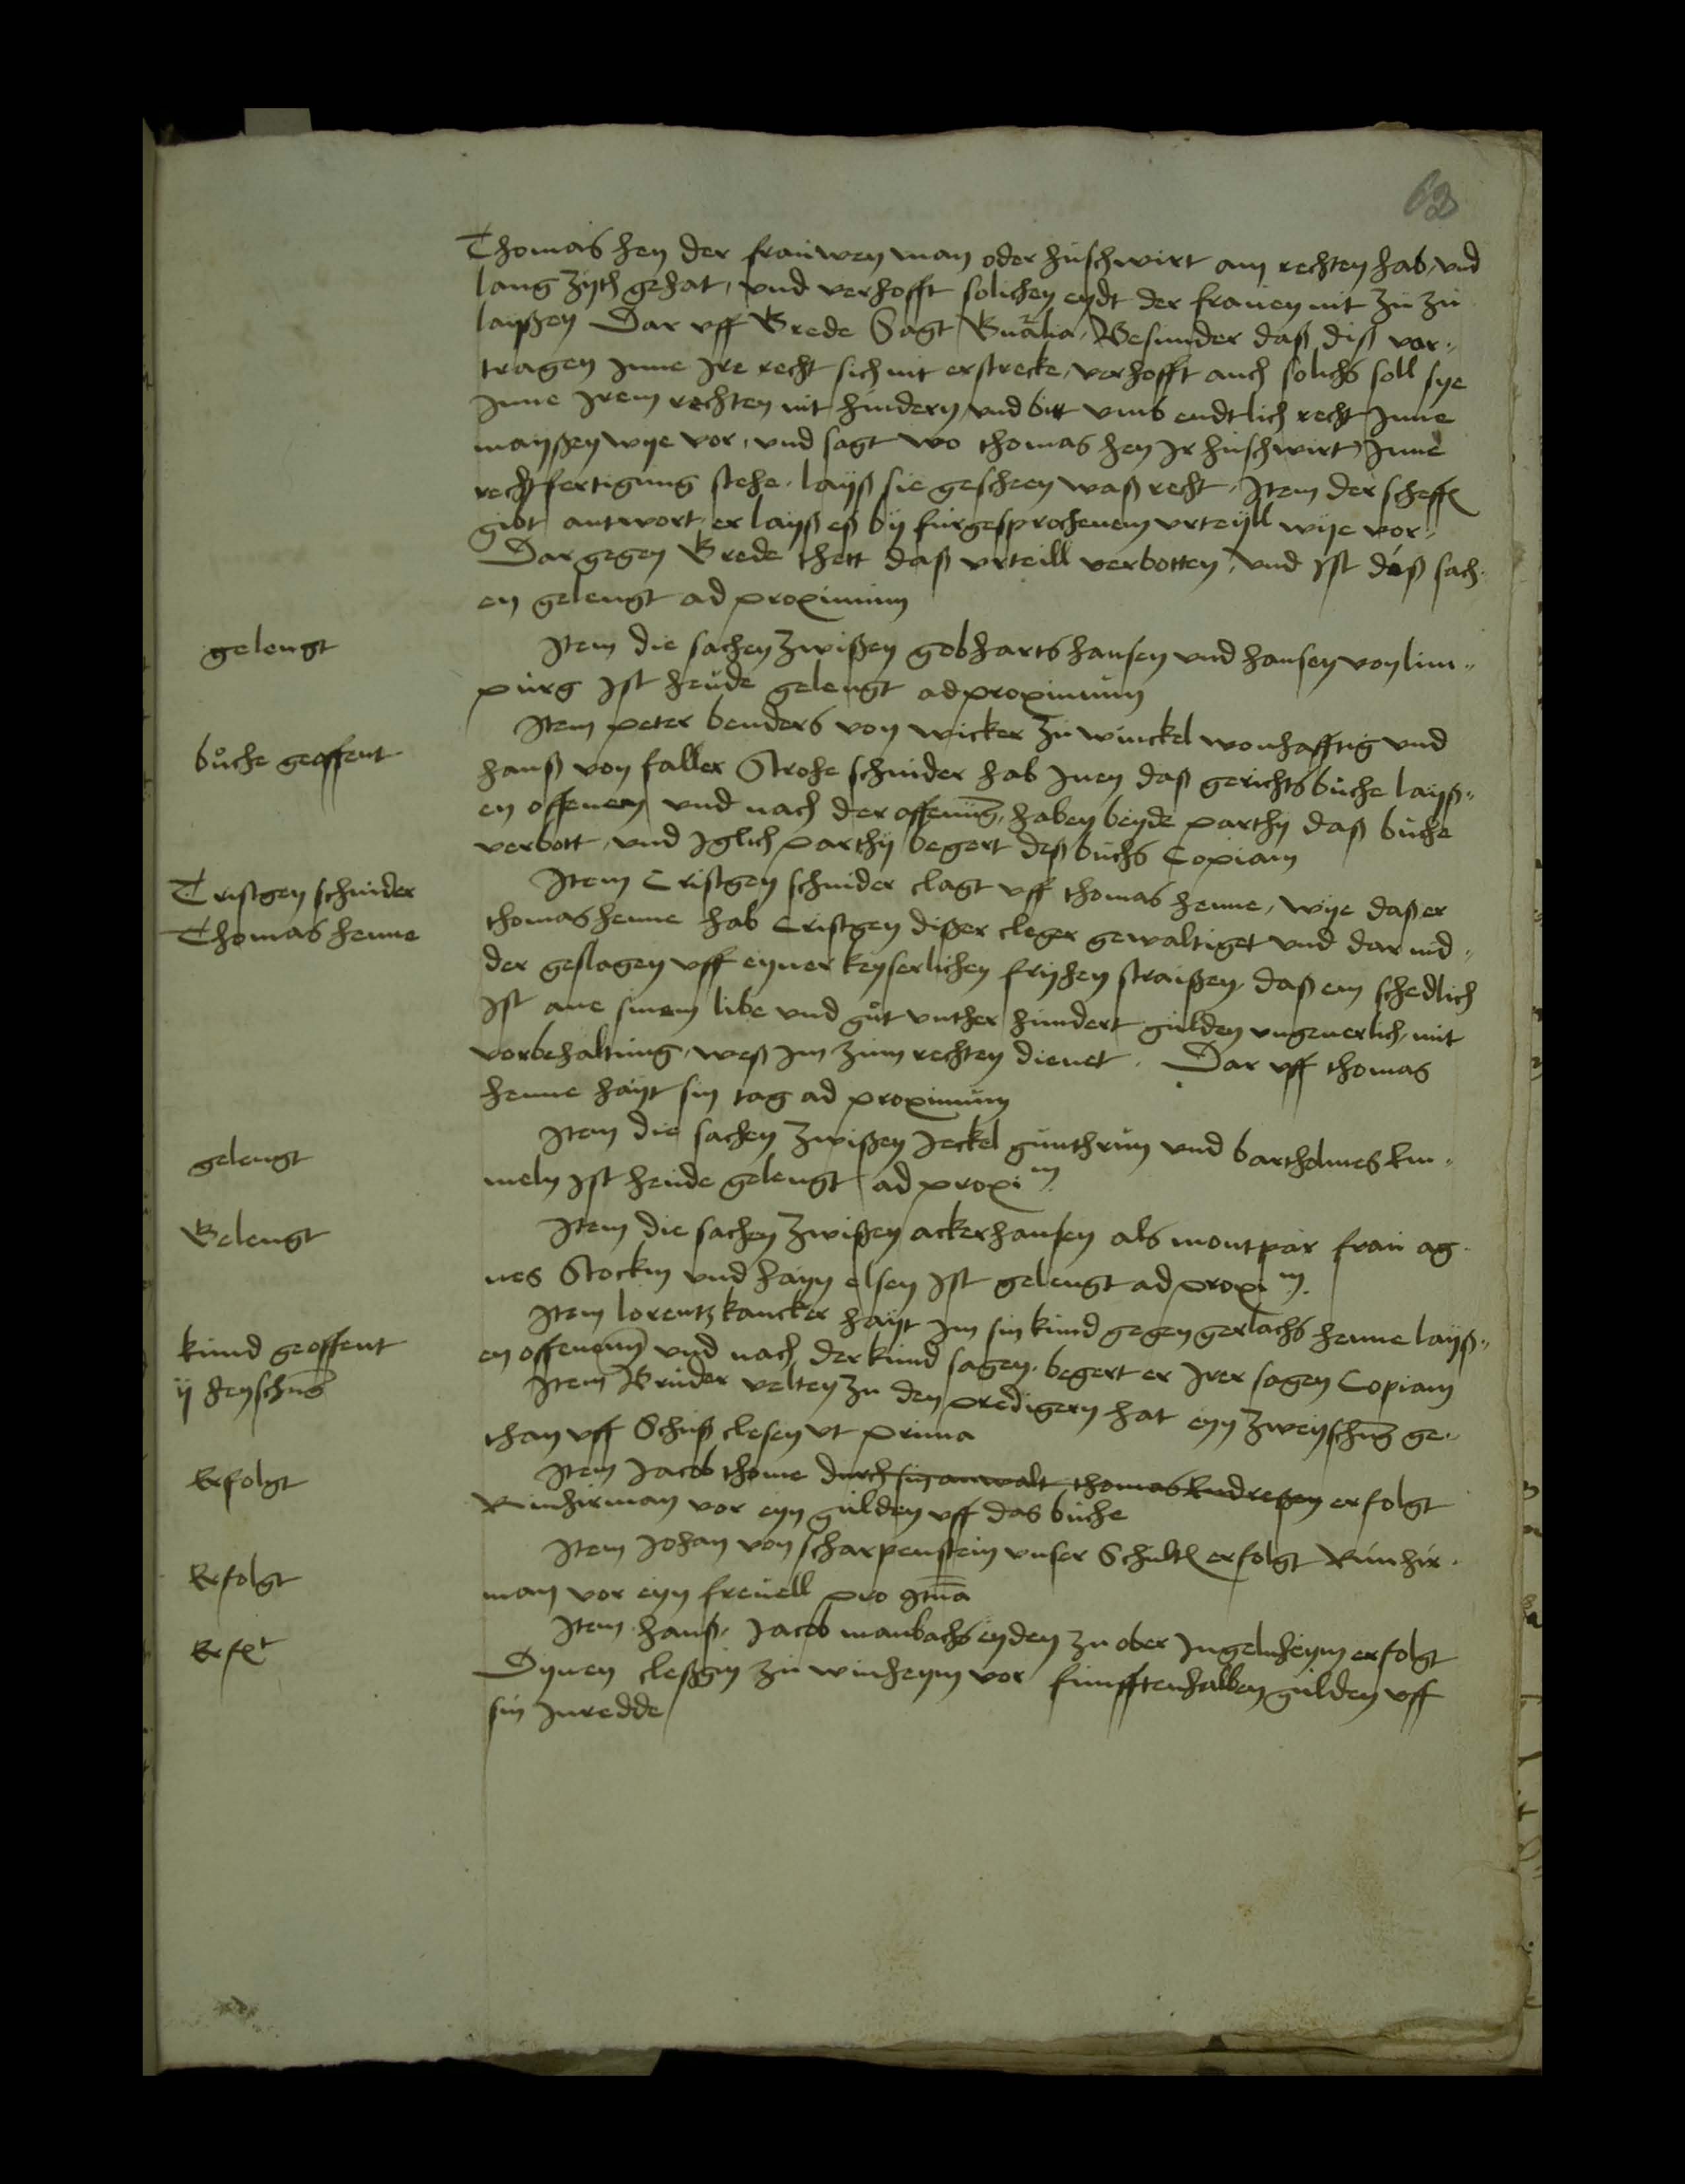 62
Thomas hen der frauwen man oder huschwirt am rechten hab, und
lang zyth gehat, und verhofft solichen eydt der frauen nit zu zu
layßen Dar uff Brede Sagt Besunder daß diß vor-
tragen Inne Ire recht sich nit erstrecke, verhofft auch solichs soll sye
Inne Irem rechten nit hindern, und bitt umb endtlich recht Inne
mayßen wye vor, und sagt wo thomas hen Ir huschwirt Inne
rechtfertigung stehe, layß sie gescheen waß recht. Item der scheff
gibt antwort er layß eß by furgesprochenem urteyll wye vor.
Dar gegen Brede thett daß urteill verbotten, und Ist daß sach-
en gelengt ad proximum
gelengt
Item die sachen zwißen gebharts hansen und hansen von lim-
purg Ist heude gelengt ad proximum
buche geoffent
Item peter benders von wicker zu winckel wonhafftig und
hanß von faller Strohe schnider hab Inen daß gerichts buche layß-
en offenen und nach der offenung, haben beyde parthy daß buche
verbott, und Iglich parthy begert deß buchs Copiam
Cristgen schnider
Thomas henne
Item Cristgen schnider clagt uff thomas henne, wye daß er
thomas henne hab Cristgen dißer cleger gewaltiget und dar nid-
der geslagen uff eyner keyserlichen fryhen straißen, daß em schedlich
Ist ane sinem libe und gut unther hundert gulden ungeuerlich, mit
vorbehaltung, weß Im zum rechten dienet. Dar uff thomas
henne hayt sin tag ad proximum
gelengt
Item die sachen zwißen Jeckel gunthrum und bartholmes km-
meln Ist heude gelengt ad proxim
Gelengt
Item die sachen zwißen ackerhansen als montpar frau ag-
nes Stockin und hayn elsen Ist gelengt ad proxim
kund geoffent
Item lorentz kancker hayt Im sin kund gegen gerlachs henne layß-
en offenenn und nach der kund sagen, begert er Irer sagen Copiam
ij heyschung
Item Bruder velten zu den predigern hat eyn zweyschung ge-
than uff Schuß clesen ut prima
Erfolgt
Item Jacob thome durch sin anwalt thomas endreßen erfolgt
Winhirman vor eyn gulden uff das buche
Erfolgt
Item Johan von scharpenstein unser Schult erfolgt Winhir-
man vor eyn freuell pro
Erfet
Item hanß, Jacob manbachs eyden zu ober Ingelnheym erfolgt
Dynen cleßgin zu winheym vor funfftenhalben gulden uff
sin Inredde